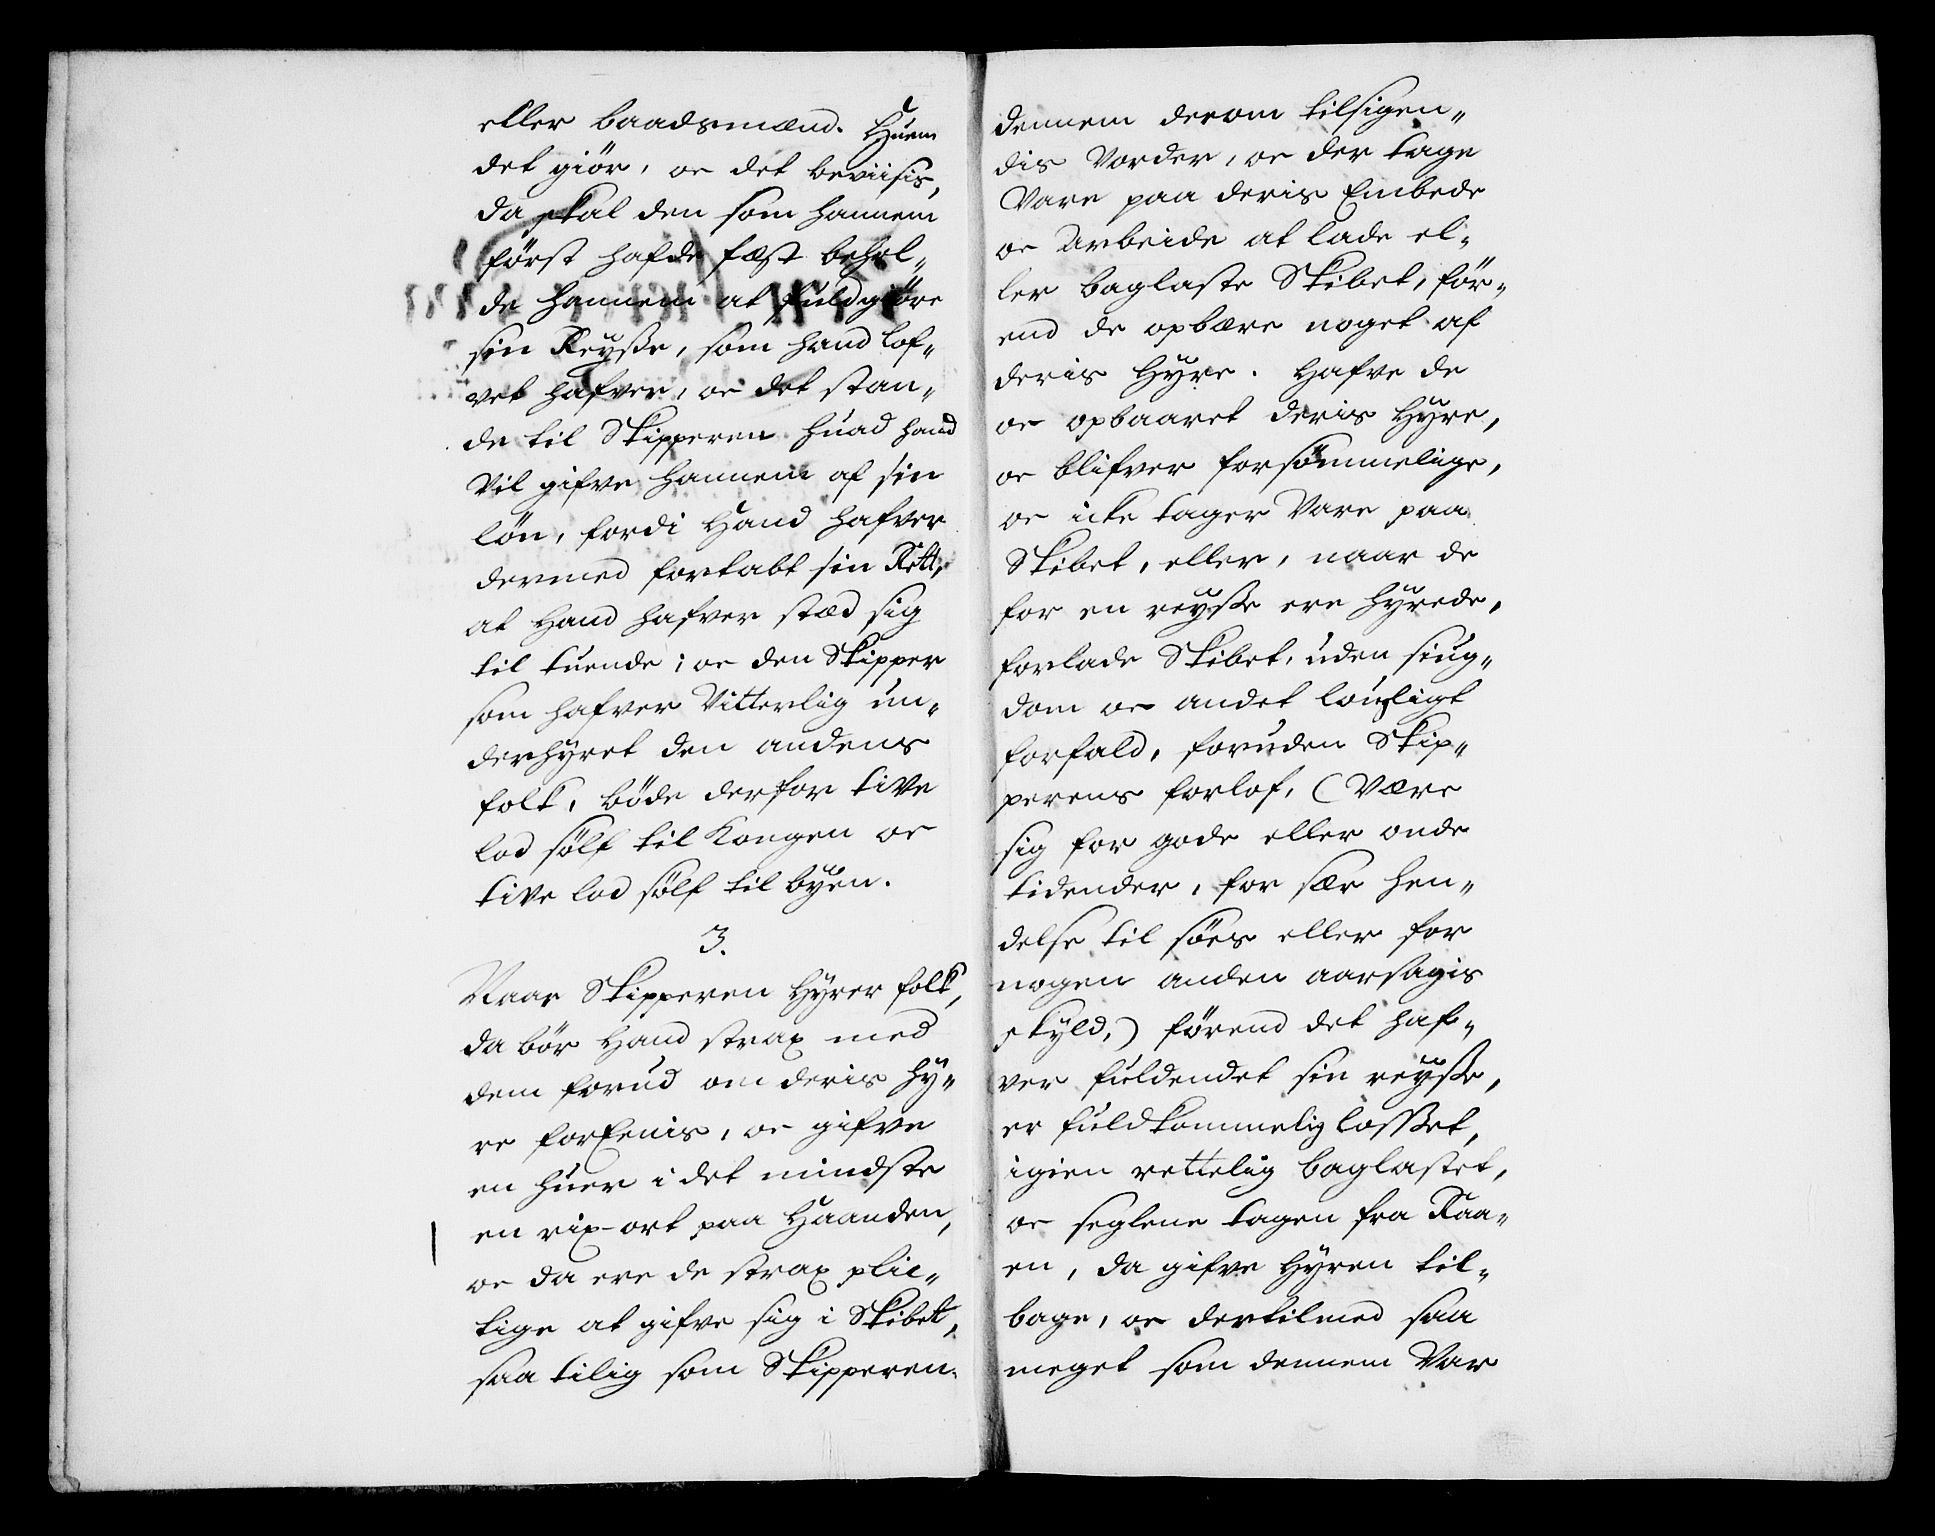 eller baadsmænd. Huem
det giör, oc det beviisis,
da skal den som hannem
först hafde fæst behol„
de hannem at fuldgiöre
sin Reysse, som hand lof„
vet hafver, oc det stan„
de til Skipperen huad hand
Vil gifve hannem af sin
lön, fordi Hand hafver
dermed fortabt sin Rett,
at Hand hafver stæd sig
til tuende; oc den Skipper
som hafver Vitterlig un„
derhyret den andens
folk, böde derfor tive
lod sölf til Kongen oc
tive lod sölf til byen.
3.
Naar Skipperen Hyrer folk,
da bör Hand strax med
dem forud om deris hy„
re forEenis, oc gifve
en huer i det mindste
en rix-ort paa Haanden,
oc da ere de strax plic„
tige at gifve sig i Skibet,
saa tilig som Skipperen
dennem derom tilsigen„
dis Vorder, oc der tage
Vare paa deris Embede
oc Arbeide at lade el„
ler baglaste Skibet, för„
end de opbære noget af
deris Hyre. Hafve de
oc opbaaret deris Hyre,
oc blifver forsömmelige,
oc icke tager Vare paa
Skibet, eller, naar de
for en reysse ere hyrede,
forlade Skibet, uden siug„
dom oc andet lougligt
forfald, foruden Skip„
perens forlof, (Være
sig for gode eller onde
tidender, for sær hen„
delse til söes eller for
nogen anden aarsagis
skyld,) förend det haf„
ver fuldendet sin reysse,
er fuldkommelig losset,
igien rettelig baglastet,
oc seglene tagen fra Raa„
en, da gifve Hyren til„
bage, oc dertilmed saa
meget som dennem Var